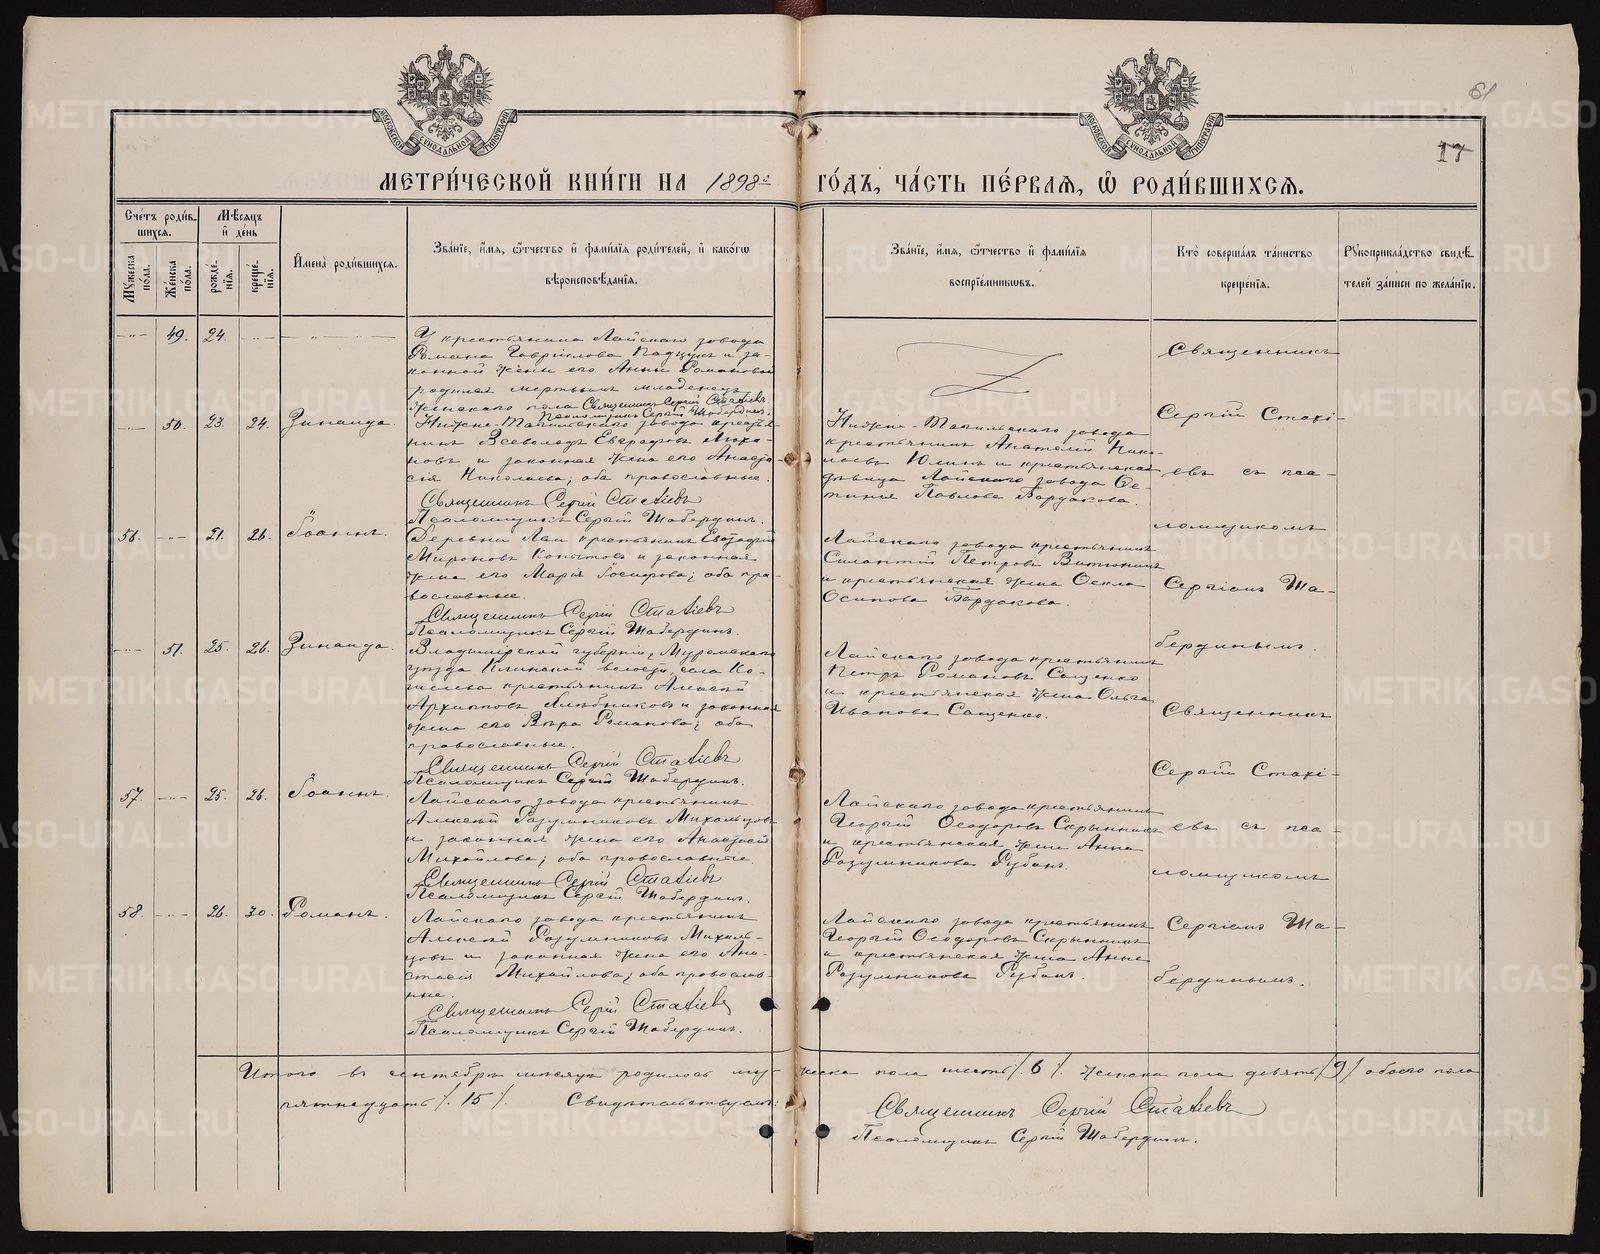 61
17
МОСКОВСКОЙ СѴНОДАЛЬНОЙ ТИПОГРАФІИ
МОСКОВСКОЙ СѴНОДАЛЬНОЙ ТИПОГРАФІИ
МЕТРИ́ЧЕСКОЙ КНИ́ГИ НА 1898 г. ГО́ДЪ, ЧА́СТЬ ПЕ́РВАЯ, Ѡ҆ РОДИ́ВШИХСЯ.
Сче́тъ роди́в-
шихся.
Мꙋжеска
по́ла.
Же́нска
по́ла.
Мѣ́сяцъ
и҆ де́нь
рожде́-
нїя.
креще́-
нїя.
И҆мена̀ роди́вшихся.
Зва́нїе, и҆́мя, ѻ҆́тчество и҆ фами́лїя роди́телей, и҆ како́гѡ
вѣроисповѣ́данїя.
Зва́нїе, и҆́мя, ѻ҆́тчество и҆ фами́лїя
воспрїе́мникѡвъ.
Кто̀ соверша́лъ та́инство
креще́нїя.
Рꙋкоприкла́дство свидѣ́-
телей за́писи по жела́нїю.
49. 24.
У крестьянина Лайскаго завода
Романа Гаврилова и за-
конной жены его Анны Романовой
родился мертвый младенец
женскаго пола Священникъ Сергій Стахіевъ
Псаломщикъ Сергій Шабердинъ.
50. 23. 24. Зинаида.
Нижне-Тагильскаго завода крестья-
нинъ Всеволодъ Евграфовъ
и законная жена его Анаста-
сія Николаева, оба православные.
Священникъ Сергій Стахіевъ
Псаломщикъ Сергій Шабердинъ.
Нижне-Тагильскаго завода
крестьянинъ Анатолій Нико-
лаевъ и крестьянская
дѣвица Лайскаго завода
Павлова Бардакова.
56. 21. 26. Іоаннъ.
Деревни Лаи крестьянинъ Евграфій
Мироновъ Копытовъ и законная
жена его Марія Іосифова; оба пра-
вославные.
Священникъ Сергій Стахіевъ
Псаломщикъ Сергій Шабердинъ.
Лайскаго завода крестьянинъ
Силантій Петровъ
и крестьянская жена Ѳекла
Осипова Бардакова.
51. 25. 26. Зинаида.
Владимірской губерніи, Муромскаго
уѣзда волости, села
крестьянинъ Алексѣй
Архиповъ и законная
жена его Вѣра Романова; оба
православные.
Священникъ Сергій Стахіевъ
Псаломщикъ Сергій Шабердинъ.
Лайскаго завода крестьянинъ
Петръ Романовъ Саценко
и крестьянская жена Ольга
Иванова Саценко.
57. 25. 26. Іоаннъ.
Лайскаго завода крестьянинъ
Алексѣй Разумниковъ Михальцовъ
и законная жена его Анастасія
Михайлова; оба православные.
Священникъ Сергій Стахіевъ
Псаломщикъ Сергій Шабердинъ.
Лайскаго завода крестьянинъ
Георгій Ѳеодоровъ Скрынникъ
и крестьянская жена Анна
Разумникова Рубанъ
58. 26. 30. Романъ.
Лайскаго завода крестьянинъ
Алексѣй Разумниковъ Михаль-
цовъ и законная жена его Ана-
стасія Михайлова; оба православ-
ные.
Священникъ Сергій Стахіевъ
Псаломщикъ Сергій Шабердинъ.
Лайскаго завода крестьянинъ
Георгій Ѳеодоровъ Скрынникъ
и крестьянская жена Анна
Разумникова Рубанъ.
Священникъ
Сергій Стахі-
евъ съ пса-
ломщикомъ
Сергіемъ Ша-
бердинымъ.
Священникъ
Сергій Стахі-
евъ съ пса-
ломщикомъ
Сергіемъ Ша-
бердинымъ.
Итого въ сентябрѣ мѣсяцѣ родилось му- жеска пола шесть /6/. женска пола девять /9/ обоего пола
пятнадцать /.15/. Свидѣтельствуемъ:
Священникъ Сергій Стахіевъ
Псаломщикъ Сергій Шабердинъ.
METRIKI.GASO-URAL.RU